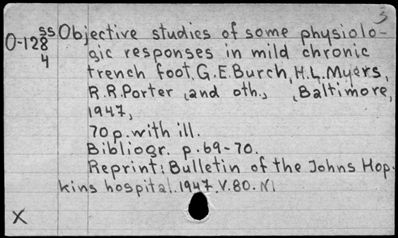 3
ss Objective studies of some physiolo-
O-128 gic responses in mild chronic
4 trench foot, G.E.Burch, H.L.Myers,
R.R.Porter, and oth., Baltimore,
1947,
70 p. with ill.
Bibliogr. p. 69-70.
Reprint: Bulletin of the Johns Hop-
kins hospital. 1947. V.80. N1
X